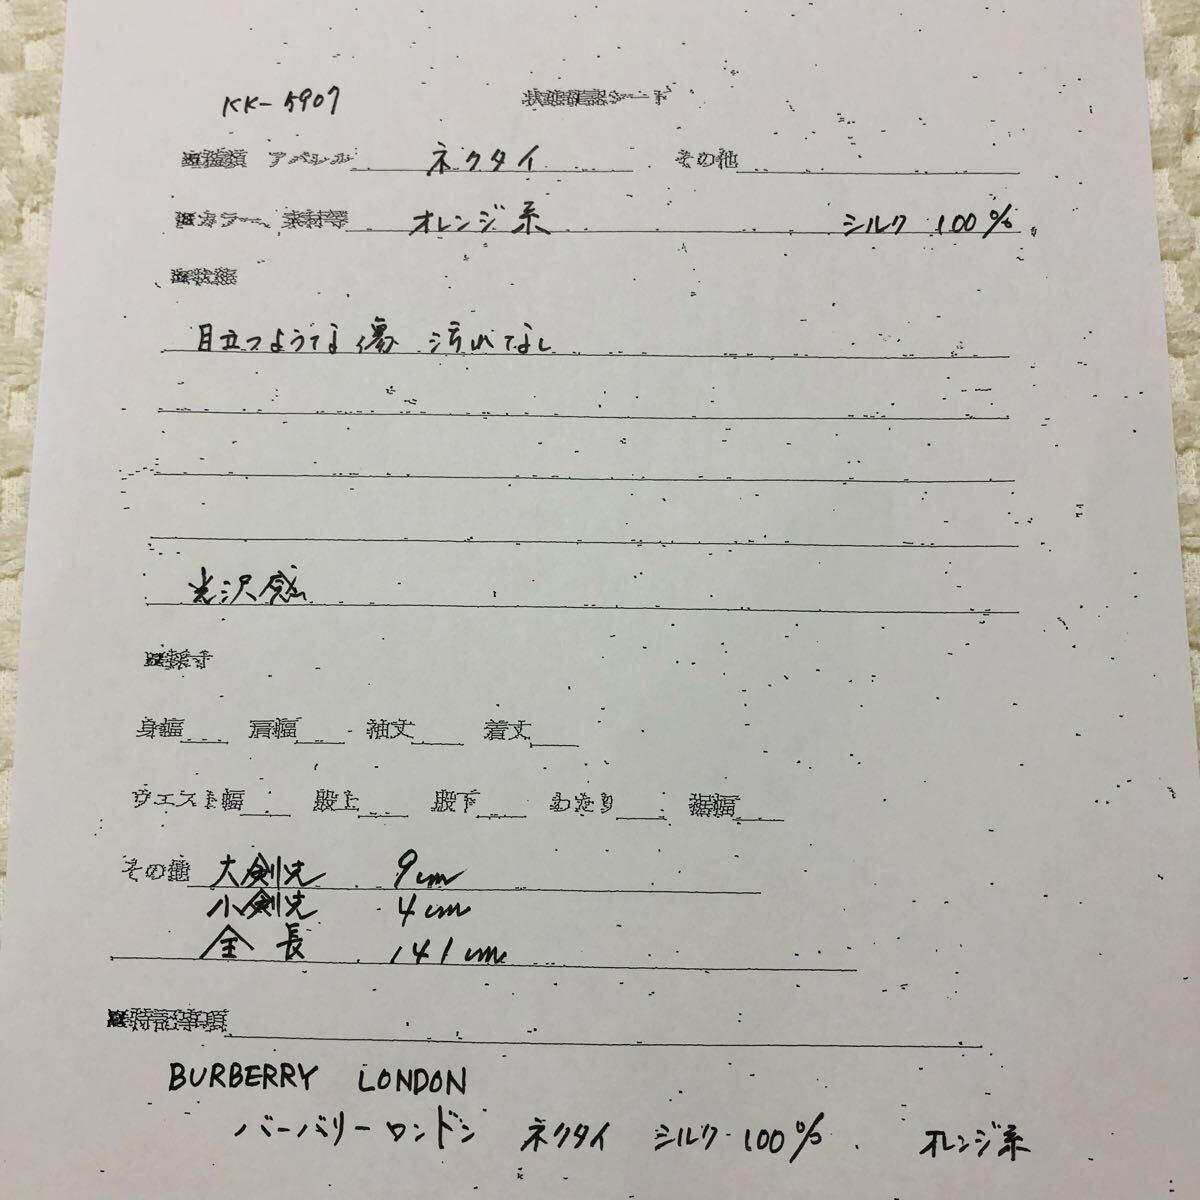 KK-5907 状態確認シート
■種類 アパレル ネクタイ その他
■カラー、素材等 オレンジ系 シルク 100%
■状態
目立つような傷 汚れなし
光沢感
■採寸
身幅 肩幅 袖丈 着丈
ウエスト幅 股上 股下 わたり 裾幅
その他 大剣先 9cm
小剣先 4cm
全長 141cm
■特記事項
BURBERRY LONDON
バーバリーロンドン ネクタイ シルク100% オレンジ系